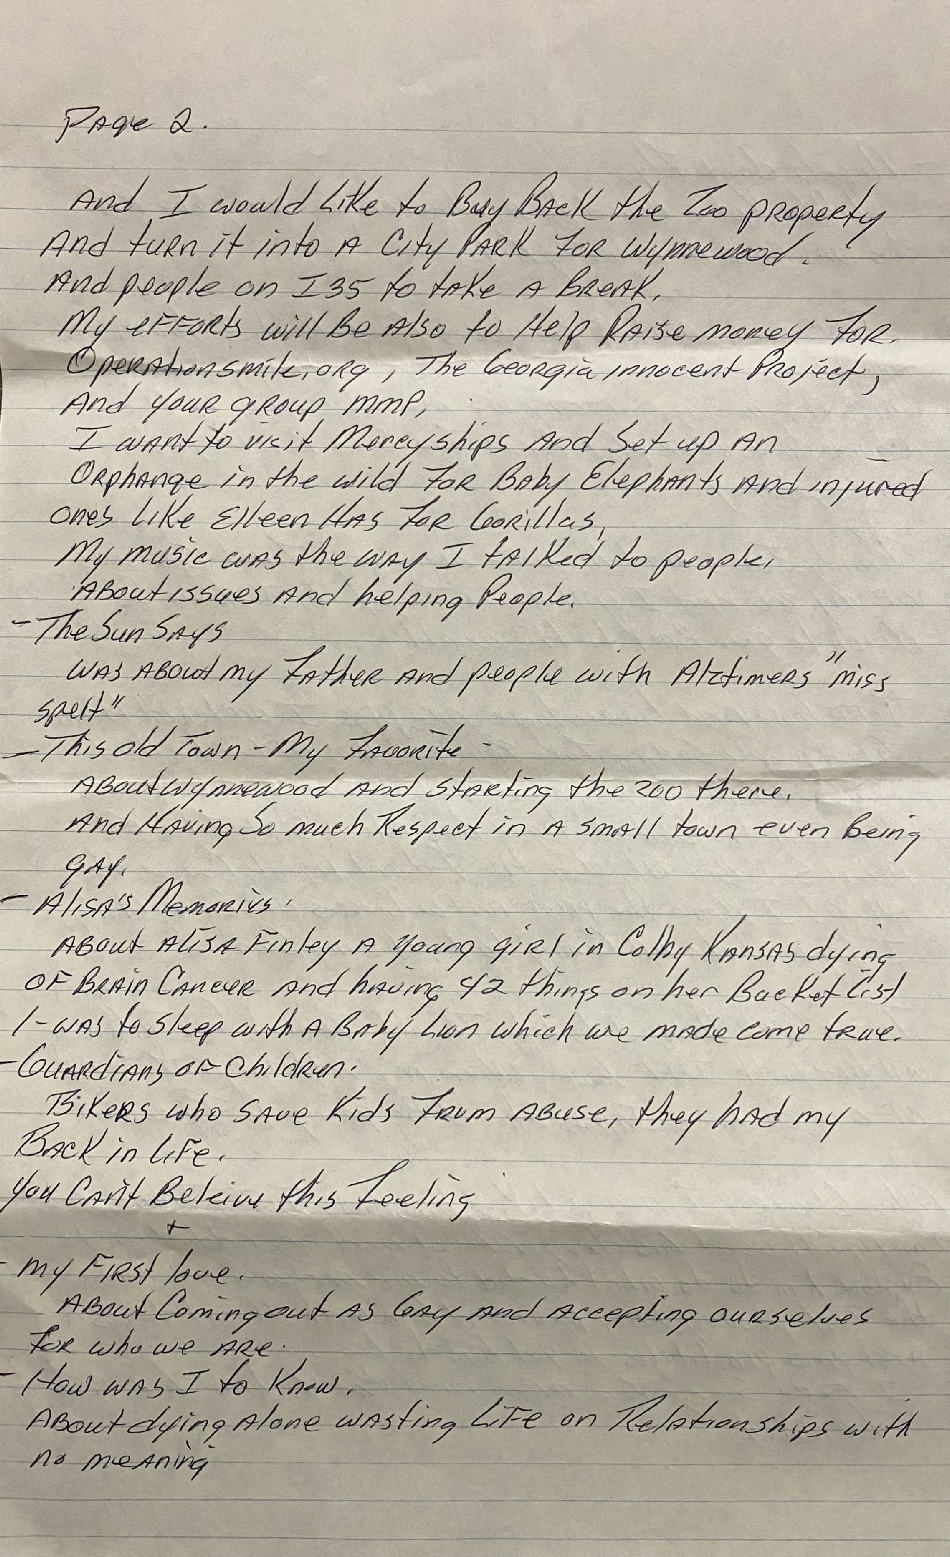 Page 2.
And I would Like to Buy Back the Zoo property
And turn it into A City Park For Wynnewood.
And people on I35 to take A Break.
My efforts will Be Also to Help Raise money For.
Operationsmile.org, The Georgia innocent Project,
And your group MMP,
I want to visit Mercyships And Set up An
Orphange in the wild For Baby Elephants And injured
ones Like Elleen Has For Gorillas,
My music was the way I talked to people,
About issues And helping People.
- The Sun Says
was About my Father And people with Alztimers "miss
spelt"
- This old Town - My Favorite -
About Wynnewood And starting the zoo there.
And Having So much Respect in A small town even Being
gay.
- Alisa's Memories.
About Alisa Finley A young girl in Colby Kansas dying
OF Brain Cancer And having 42 things on her Bucket List
1- was to Sleep with A Baby Lion which we made come true.
- Guardians of Children.
Bikers who Save Kids From Abuse, they had my
Back in Life.
You Can't Beleive this Feeling
+
- my First love.
About Coming out As Gay And Accepting ourselves
For who we Are.
- How was I to Know.
About dying Alone wasting Life on Relationships with
no meaning